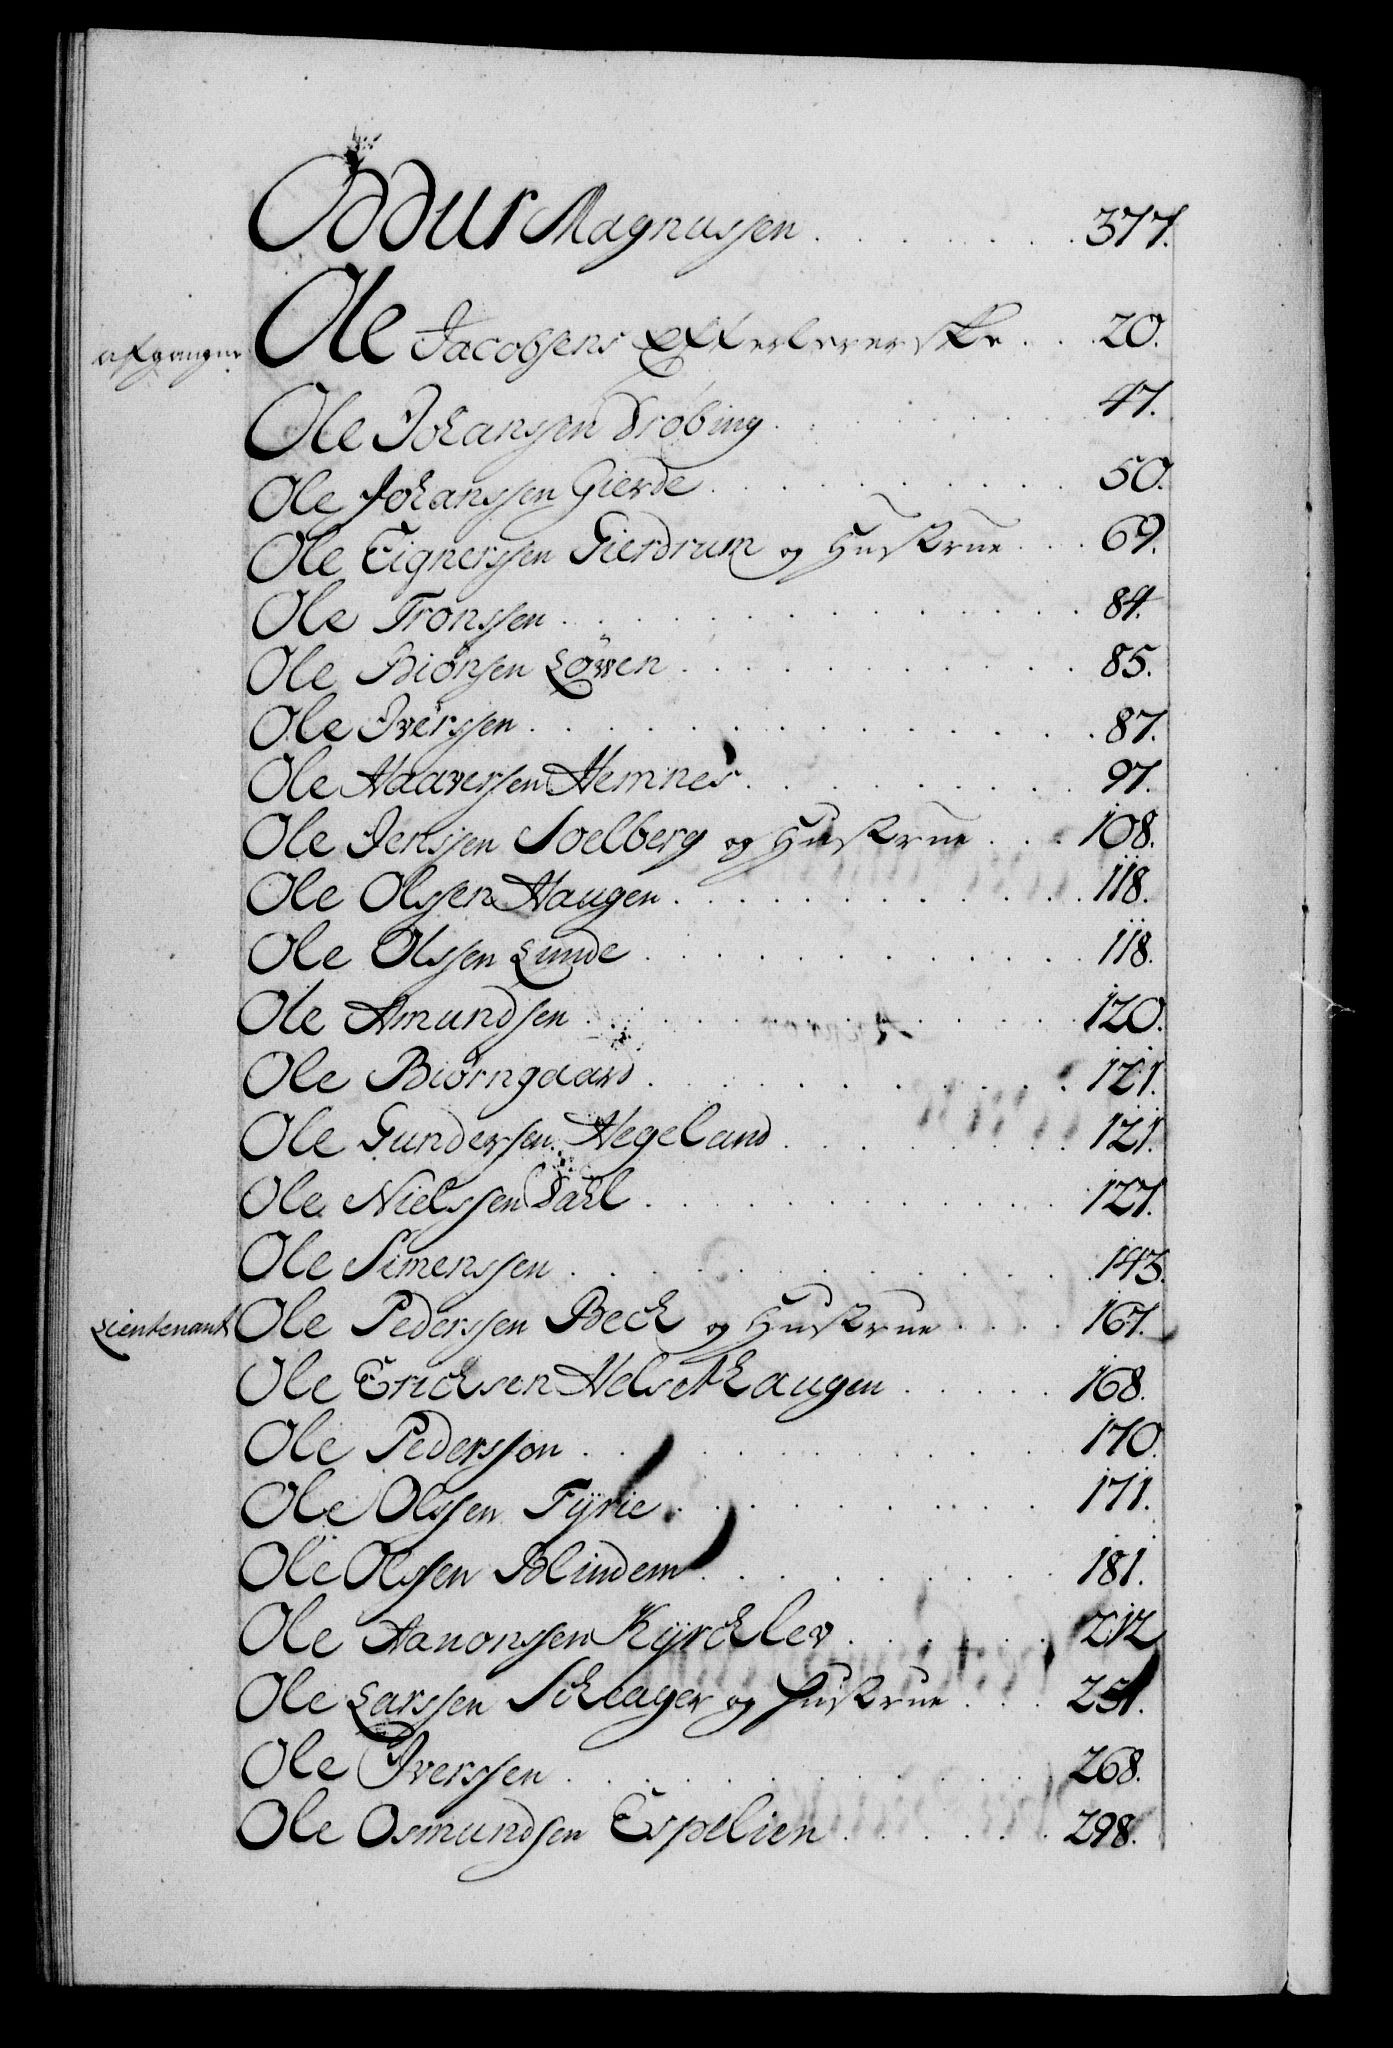 Oddur Magnussen . . . . . . . 377.
afgangne Ole Jacobsens Efterleverske . . . 20.
Ole Johanssen Drøbing . . . . . . . 47.
Ole Johanssen Gierde . . . . . . . . 50.
Ole Eignerssen Gierdrum og Hustrue . . . 69.
Ole Tronssen . . . . . . . . . . . 84.
Ole Biönsen Löwen . . . . . . . . . 85.
Ole Iverssen . . . . . . . . . . . 87.
Ole Haaverssen Hemnes . . . . . . . 97.
Ole Jenssen Soelberg og Hustrue . . . 108.
Ole Olssen Haugen . . . . . . . . . 118.
Ole Olssen Lunde . . . . . . . . . 118.
Ole Amundsen . . . . . . . . . . 120.
Ole Biörngaard . . . . . . . . . 121.
Ole Gunderssen Hegeland . . . . . . 121.
Ole Nielssen Dahl . . . . . . . . . 127.
Ole Simenssen . . . . . . . . . . 143.
Lieutenant Ole Pederssen Beck og Hustrue . . . . 167.
Ole Ericksen Helsethaugen . . . . . 168.
Ole Pederssøn . . . . . . . . . . 170.
Ole Olssen Fÿrie . . . . . . . . . 171.
Ole Olssen Blindem . . . . . . . . 181.
Ole Aanonssen Kÿrcklev . . . . . . 212
Ole Larssen Scheager og Hustrue . . . 251.
Ole Iverssen . . . . . . . . . . 268.
Ole Osmundsen Espelien . . . . . . 298.